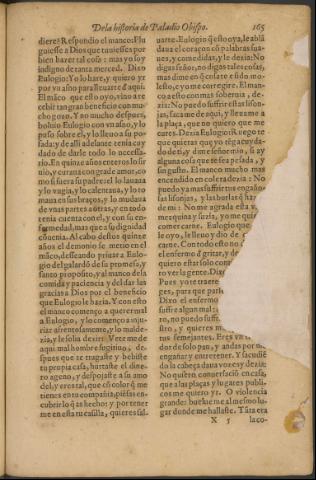 De la historia de Paladio Obispo. 165
diere? Respondio el manco: Plu
guiesse a Dios que tuuiesses por
bien hazer tal cosa: mas yo soy
indigno de tanta merced. Dixo
Eulogio: Yo lo hare, y quiero yr
por vn asno para lleuarte d'aqui.
El māco que esto oyo, vino a re
cebir tan gran beneficio con mu-
cho gozo. Y no mucho despues,
boluio Eulogio con vn asno, y lo
puso sobre el, y lo lleuo a su po-
sada: y de alli adelante tenia cuy
dado de darle todo lo necessa-
rio. En quinze años enteros lo sir
uio, y curaua con grāde amor, co
mo si fuera su padre: el lo lauaua
y lo vngia, y lo calētaua, y lo to
maua en sus braços, y lo mudaua
de vnas partes a otras, y en todo
tenia cuenta con el, y con su en-
fermedad, mas que a su dignidad
cōuenia. Al cabo destos quinze
años el demonio se metio en el
māco, desseando priuar a Eulo-
gio del galardō de su promesa, y
santo proposito, y al manco de la
comida y paciencia y del dar las
gracias a Dios por el beneficio
que Eulogio le hazia. Y con esto
el manco començo a querer mal
a Eulogio, y lo començo a inju-
riar afrentosamente, y lo malde-
zia, y le solia dezir: Vete me de
aqui mal hombre fugitiuo, de-
spues que te tragaste y bebiste
tu propia casa, hurtaste el dine-
ro ageno, y despojaste a su amo
del, y eres tal, que cō color q̄ me
tienes en tu compañia, piēsas en-
cubrir lo q̄ as hecho: y por tener
me en esta tu casilla, quieres sal-
uarte. Eulogio q̄ esto oya, le ablā
daua el coraçon cō palabras sua-
ues, y comedidas, y le dezia: No
digas señor, no digas tales cosas,
mas dime en q̄ cosa te e sido mo
lesto, y o yo me corregire. El man-
co a esto con mas soberuia, de-
zia: No puedo suffrir estas lison-
jas, saca me de aqui, y lleuame a
la plaça, que no quiero que me
cures. Dezia Eulogio: Ruego te
que quieras que yo tēga cuyda-
do de ti, y dime señor mio, si ay
alguna cosa que te sea pesada, y
sin gusto. El manco mucho mas
encendido en colera dezia: No
puedo ya mas suffrir tus engaño-
sas lisonjas, y las burlas q̄ haz
de mi: No me agrada esta v
mezquina y suzia, yo me quie
comer carne. Eulogio que
le oyo, le lleuo y dio de c
carne. Con todo esto no
el enfermo d gritar, y de
quiero estar solo conti
ro ver la gente. Dixe
Pues yo te traere
ges, para que passe
Dixo el enfermo
suffre algun mal:
ro, no puedo suffr
stro, y quieres m
tus semejantes. Eres vn
dor de solo pan, y andas por m
engañar y entretener. Y sacudiē
do la cabeça daua vozes y dezia:
No quiero conuersaciō en casa,
que a las plaças y lugares publi-
cos me quiero yr. O violencia
grande: burlas me al mesmo lu-
gar donde me hallaste. Tāta era
X 5 la co-